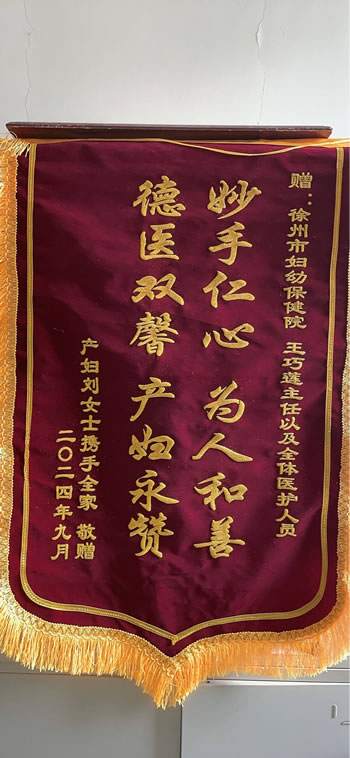 赠：徐州市妇幼保健院 王巧莲主任以及全体医护人员
妙手仁心 为人和善
德医双馨 产妇永赞
产妇刘女士携手全家 敬赠
二〇二四年九月